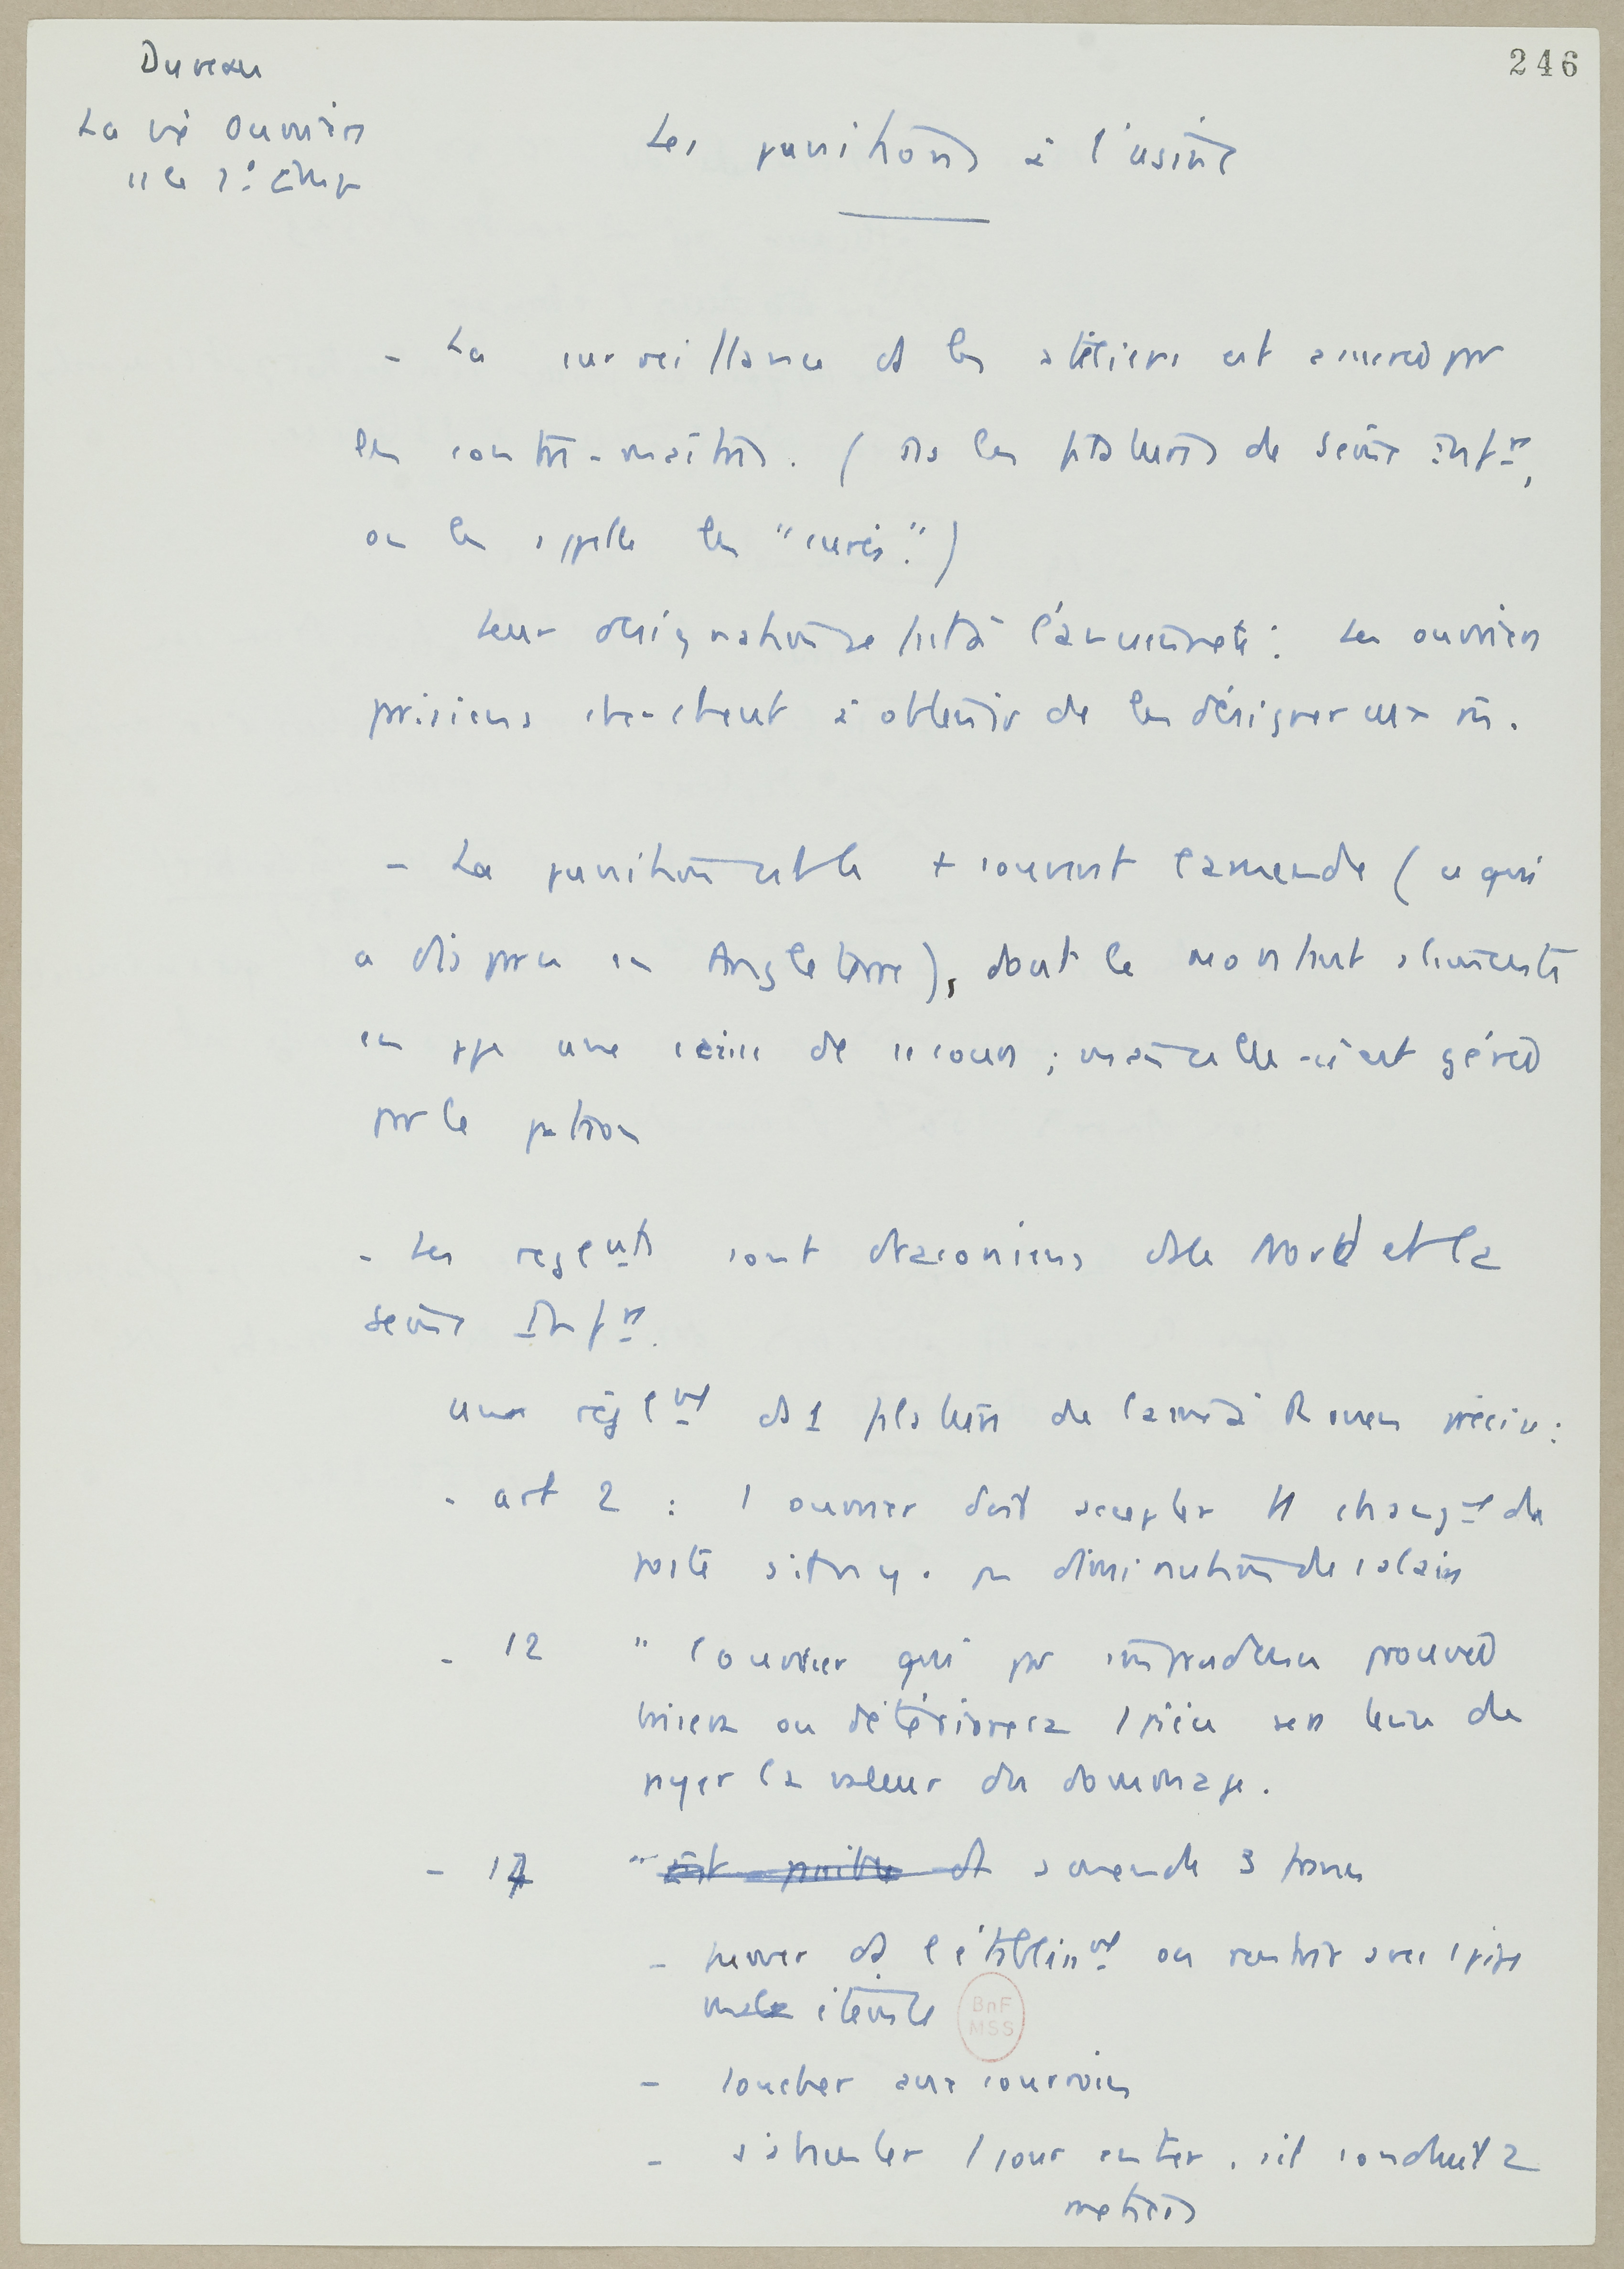 246
Duveau
La vie ouvrière
ss le 2e Emp
Les punitions à l'usine
- La surveillance ds les ateliers est assurée par
les contre-maîtres. (ds les filatures de Seine Infre,
on les appelle les "curés".)
Leur désignation se fait à l'ancienneté : les ouvriers
parisiens cherchent à obtenir de les désigner eux m.
- La punition est le + souvent l'amende (ce qui
a disparu en Angleterre), dont le montant alimente
en ppe une caisse de secours ; mais celle-ci est gérée
par le patron
- Les reglents sont draconiens ds le Nord et la
Seine Infre.
un règlmt ds 1 filature de laine à Rouen précise :
- art 2 : 1 ouvrier doit accepter tt changt de
poste s'il n'y a pas diminution de salaire
- 12 " l'ouvrier qui par imprudence prouvée
brisera ou détériorera 1 pièce sera tenu de
payer la valeur du dommage.
- 14 " amende 3 francs
- fumer ds l'établisst ou rentrer avec 1 pipe
mal éteinte
- toucher aux courroies
- s'absenter 1 jour entier, s'il conduit 2
métiers
BnF
MSS